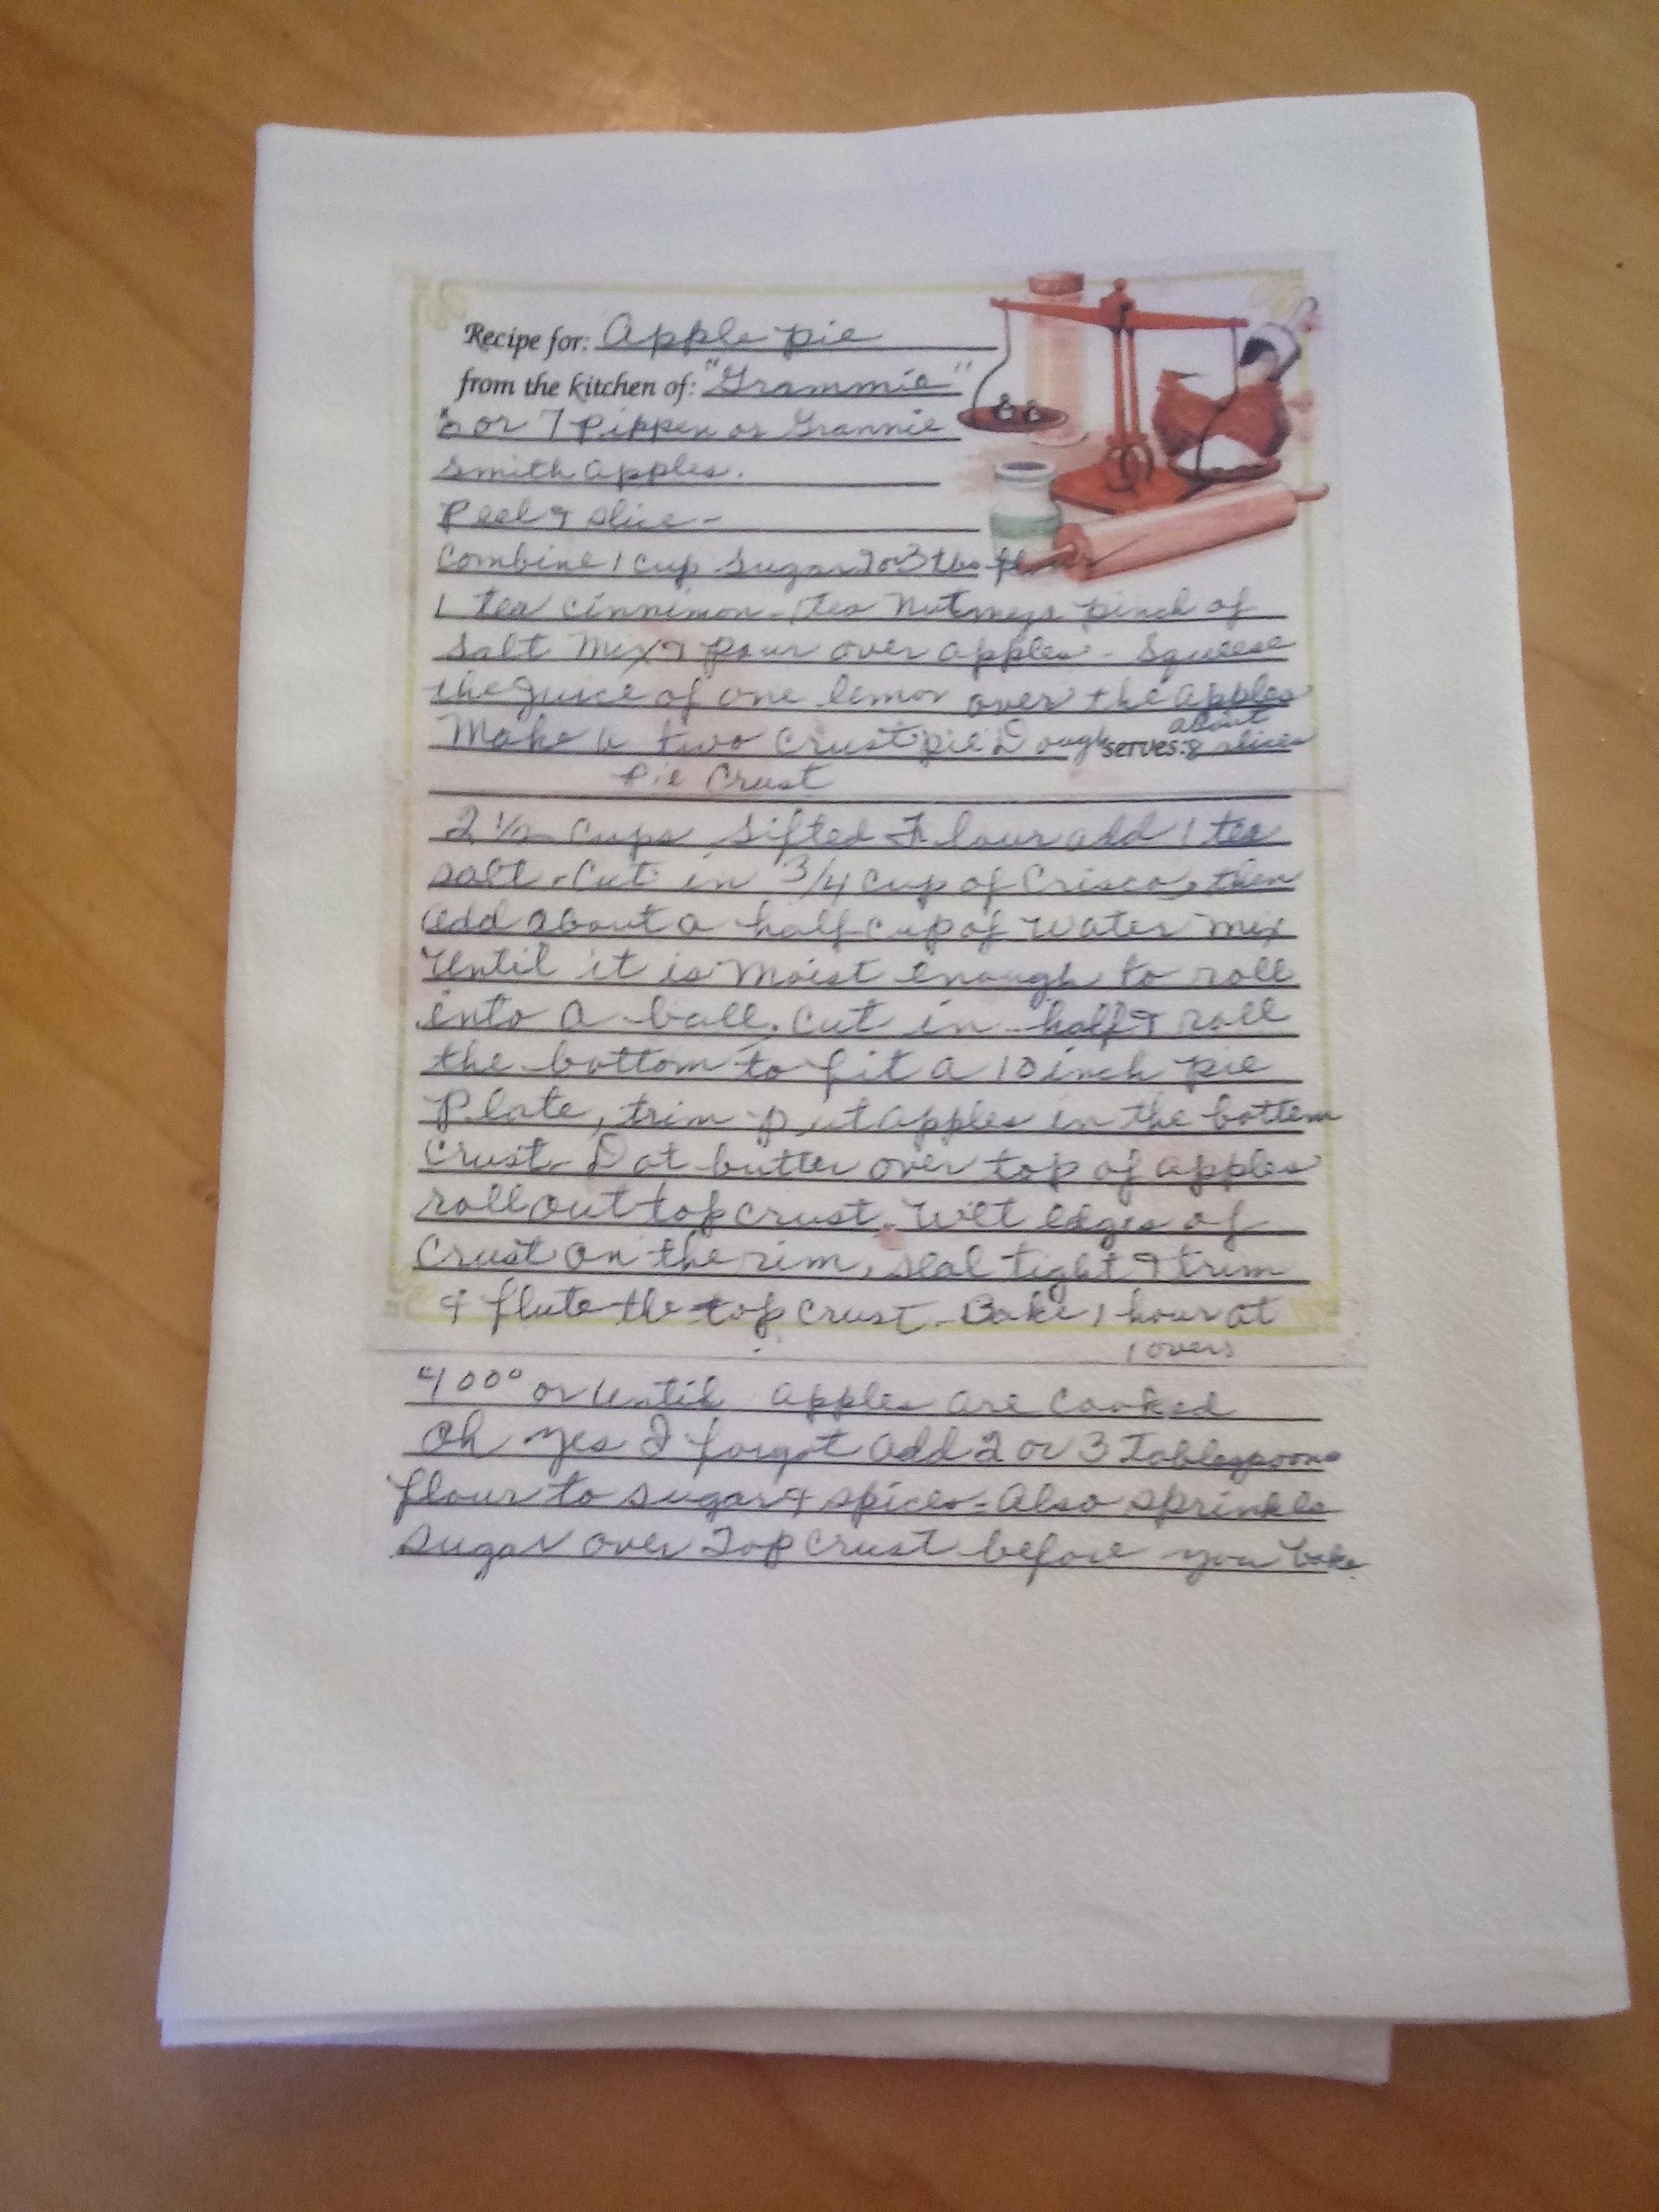 Recipe for: Apple pie
from the kitchen of: "Grammie"
6 or 7 Pippen or Grannie
Smith apples.
Peel & slice -
Combine 1 cup Sugar 2 or 3 tbs
1 tea cinnimon - 1 tea Nutmeg pinch of
salt Mix & pour over apples - Squeese
the juice of one lemon over the apples
about
Make a two crust pie Dough serves: 8 slices
Pie Crust
2 1/2 Cups Sifted Flour add 1 tea
salt. Cut in 3/4 cup of Crisco, then
add about a half cup of water mix
Until it is Moist enough to roll
into a ball. Cut in half & roll
the bottom to fit a 10 inch pie
Plate, trim put apples in the bottom
Crust - Dot butter over top of apples
roll out top crust. Wet edges of
Crust on the rim, seal tight & trim
& flute the top crust. Bake 1 hour at
400° or Until apples are cooked
Oh yes I forgot add 2 or 3 Tablespoons
flour to sugar & spices - Also sprinkle
sugar over Top Crust before you bake